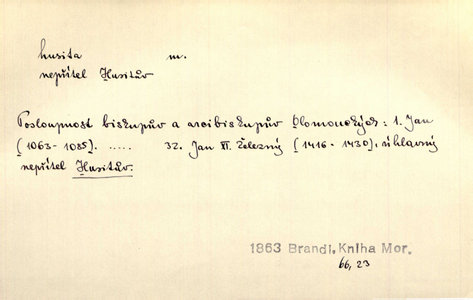 husita m.
nepřítel Husitův
Posloupnost biskupův a arcibiskupův Olomouckých: 1. Jan
(1063-1085). ..... 32. Jan XI. Železný (1416-1430). úhlavný
nepřítel Husitův.
1863 Brandl, Kniha Mor.
66, 23